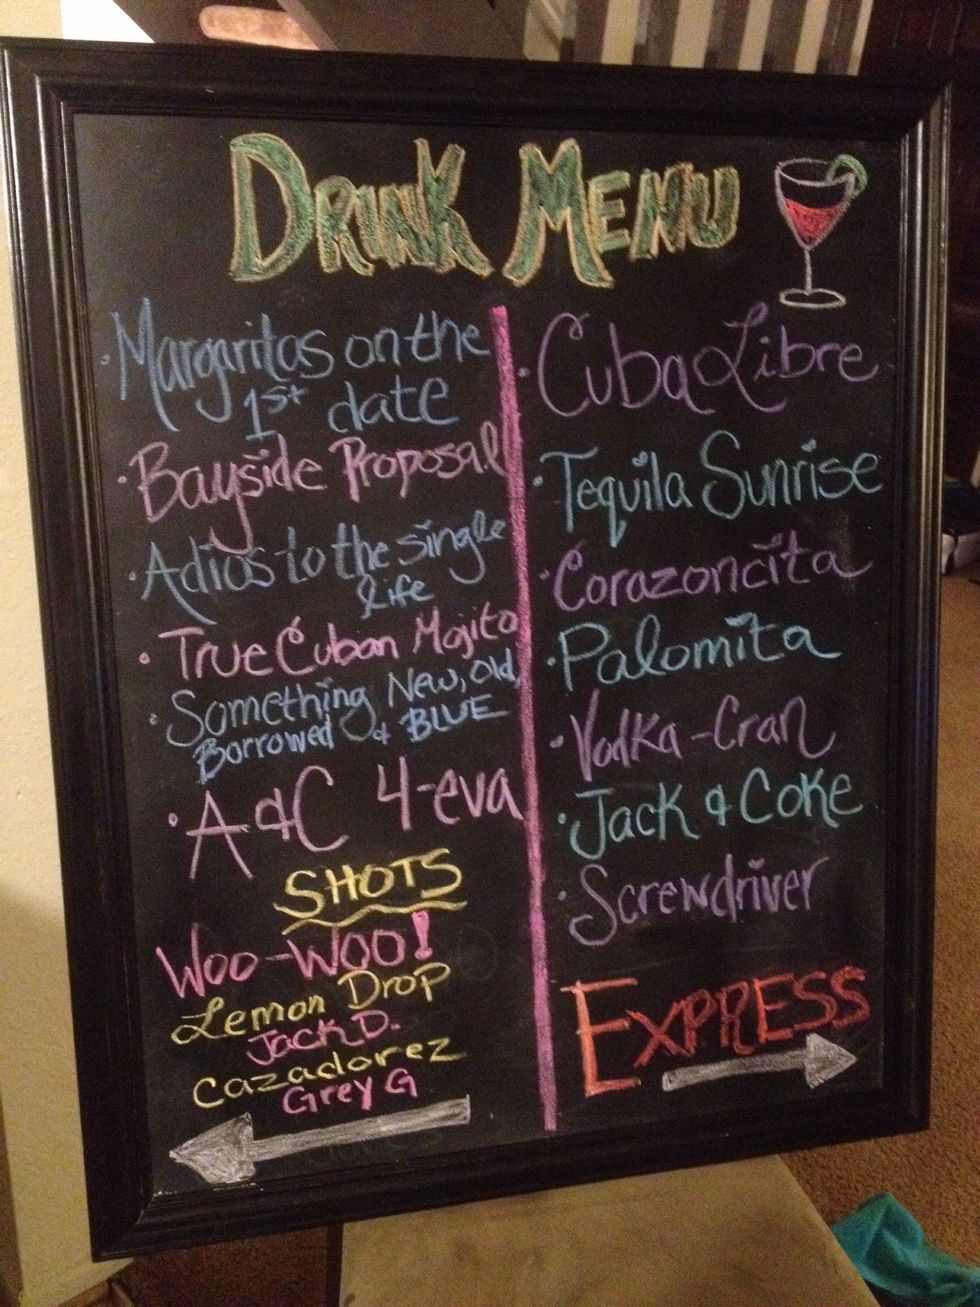 DRINK MENU
· Margaritas on the
1st date
· Bayside Proposal
· Adios to the single
life
· True Cuban Mojito
· Something New, Old,
Borrowed & BLUE
· A & C 4-eva
SHOTS
Woo-Woo!
Lemon Drop
Jack D.
Cazadorez
Grey G
· Cuba Libre
· Tequila Sunrise
· Corazoncita
· Palomita
· Vodka-Cran
· Jack & Coke
· Screwdriver
EXPRESS